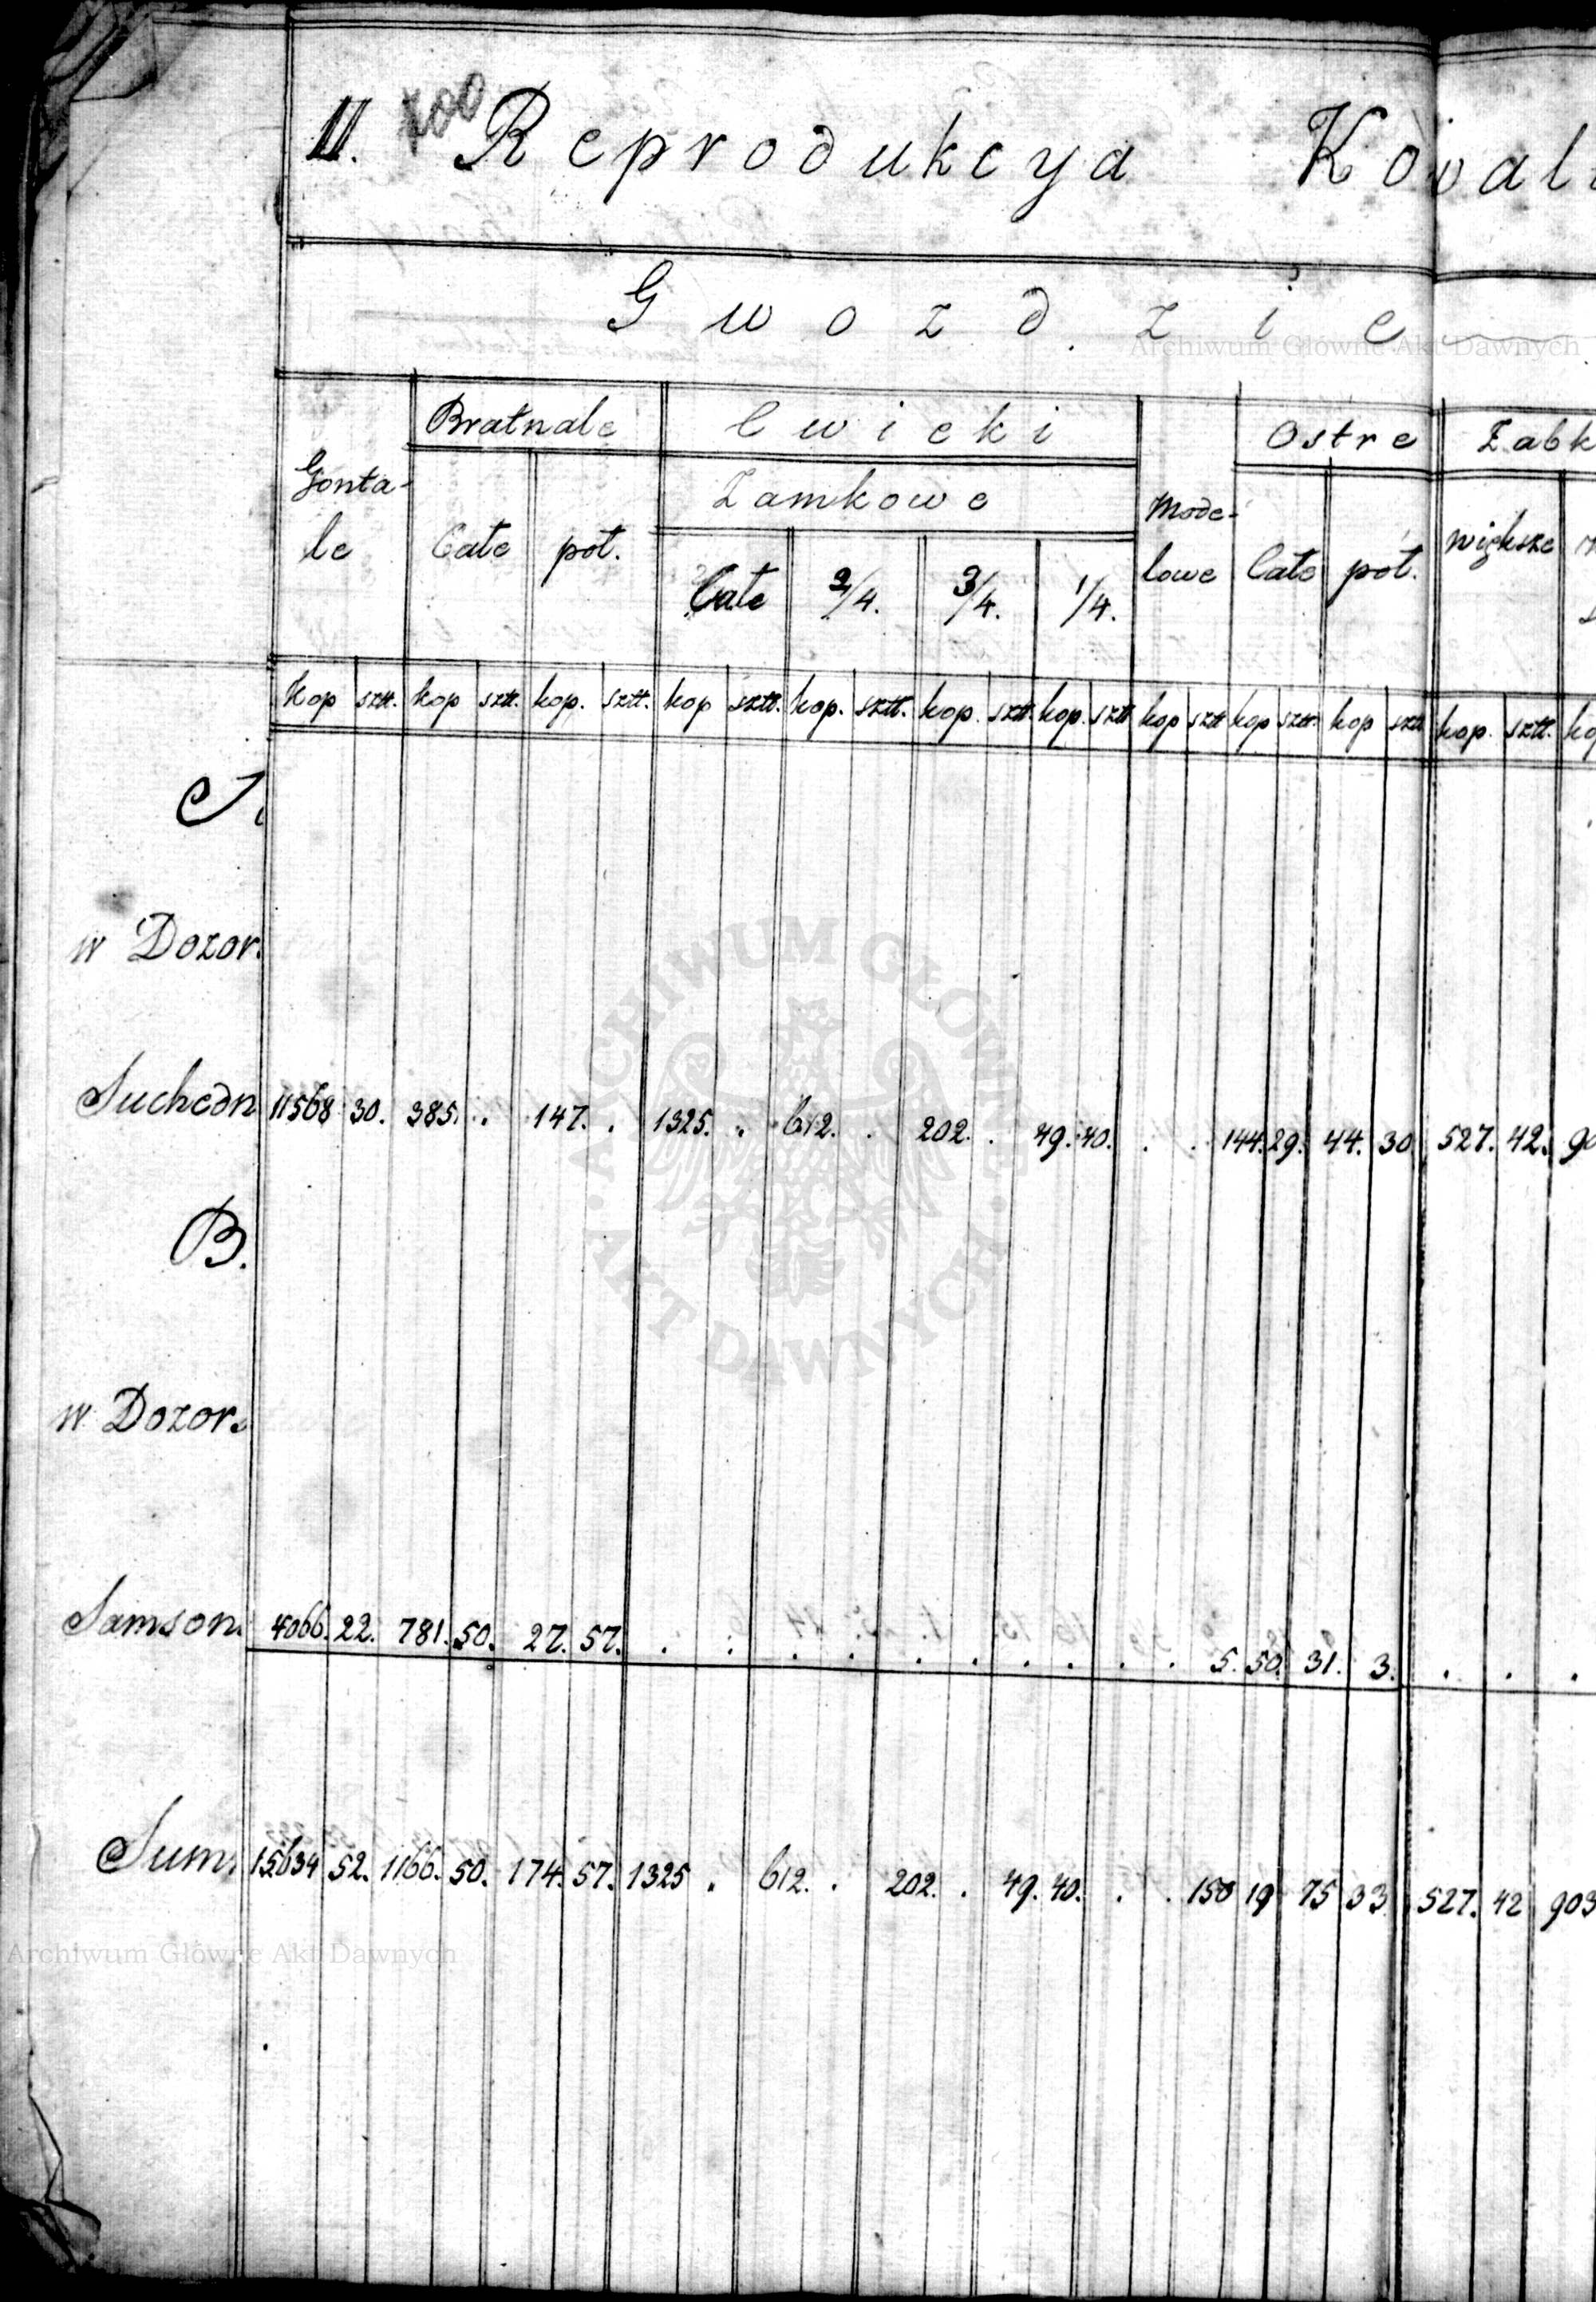 II. 100 Reprodukcya Kowal
Gwozdzie
Bratnale Cwieki Ostre Zabk
Gonta-
le
Całe poł.
Zamkowe
Całe 2/4. 3/4. 1/4.
Mode-
lowe
Całe poł.
większe
Kop sztt. kop sztt. kop. sztt. kop sztt. kop. sztt. kop. sztt. kop. sztt kop sztt kop sztt. kop sztt kop. sztt. ko
w Dozor.
Suchedn 11568 30. 385. . 147. . 1325. . 612. . 202. . 49. 40. . . 144. 29. 44. 30 527. 42. 90
B.
w Dozor.
Samson. 4066. 22. 781. 50. 27. 57. . . . . . . . . . . 5. 50. 31. 3. . . .
Sum. 15634 52. 1166. 50. 174. 57. 1325 . 612. . 202. . 49. 40. . . 150 19 75 33 527. 42 903
Archiwum Główne Akt Dawnych
ARCHIWUM GŁÓWNE
AKT DAWNYCH
Archiwum Główne Akt Dawnych